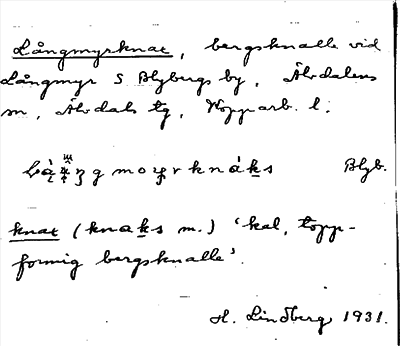 Långmyrknat, bergsknalle vid
Långmyr S Blybergs by, Älvdalens
sn, Älvdals tg, Kopparb. l.
Blyb.
knat (knaks m.) 'kal, topp-
formig bergsknalle'.
H. Lindberg 1931.